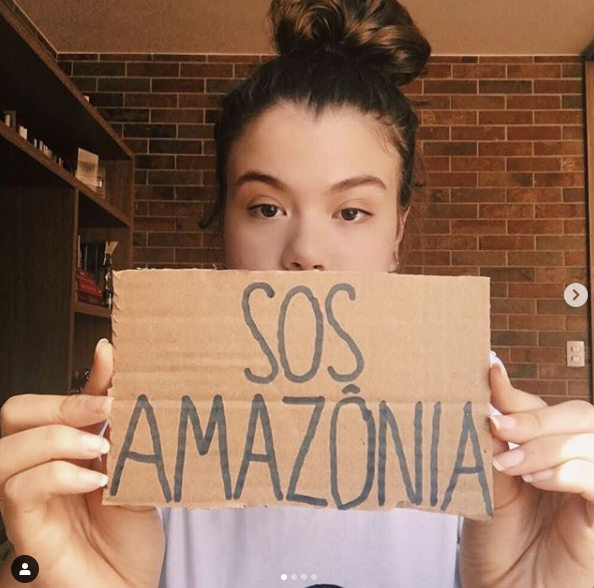 SOS
AMAZÔNIA